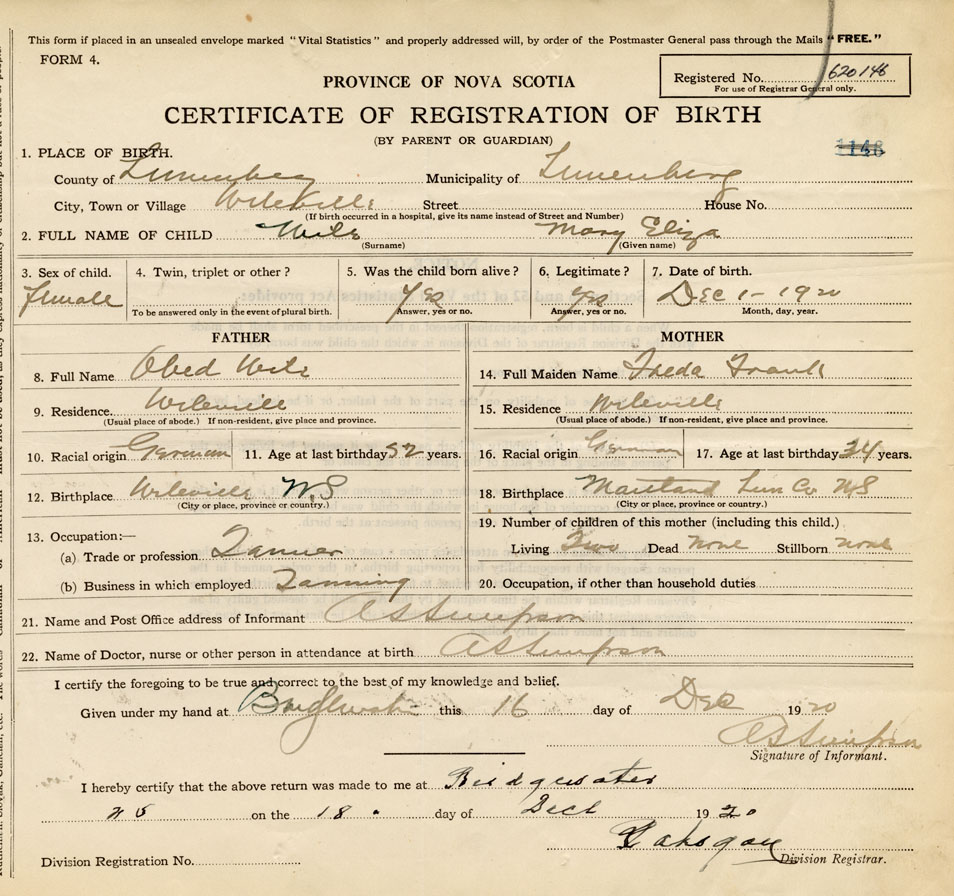 This form if placed in an unsealed envelope marked "Vital Statistics" and properly addressed will, by order of the Postmaster General pass through the Mails "FREE."
FORM 4.
Registered No. 620146
For use of Registrar General only.
PROVINCE OF NOVA SCOTIA
CERTIFICATE OF REGISTRATION OF BIRTH
(BY PARENT OR GUARDIAN)
1. PLACE OF BIRTH.
County of Lunenberg Municipality of Lunenberg
City, Town or Village Wileville Street House No.
(If birth occurred in a hospital, give its name instead of Street and Number)
2. FULL NAME OF CHILD Wile Mary Eliza
(Surname) (Given name)
3. Sex of child. 4. Twin, triplet or other? 5. Was the child born alive? 6. Legitimate? 7. Date of birth.
Female Yes Yes Dec 1 - 1920
To be answered only in the event of plural birth. Answer, yes or no. Answer, yes or no. Month, day, year.
FATHER MOTHER
8. Full Name Obed Wile 14. Full Maiden Name Freda Frank
9. Residence. Wileville 15. Residence Wileville
(Usual place of abode.) If non-resident, give place and province. (Usual place of abode.) If non-resident, give place and province.
10. Racial origin German 11. Age at last birthday 52 years. 16. Racial origin German 17. Age at last birthday 34 years.
12. Birthplace Wileville N.S 18. Birthplace Maitland Lun Co NS
(City or place, province or country.) (City or place, province or country.)
13. Occupation:— 19. Number of children of this mother (including this child.)
(a) Trade or profession Tanner Living Two Dead none Stillborn none
(b) Business in which employed Tanning 20. Occupation, if other than household duties
21. Name and Post Office address of Informant A S Simpson
22. Name of Doctor, nurse or other person in attendance at birth A S Simpson
I certify the foregoing to be true and correct to the best of my knowledge and belief.
Given under my hand at Bridgewater this 16 day of Dec 1920
A S Simpson
Signature of Informant.
I hereby certify that the above return was made to me at Bridgewater
NS on the 18 day of Dec 1920
Division Registration No. Division Registrar.